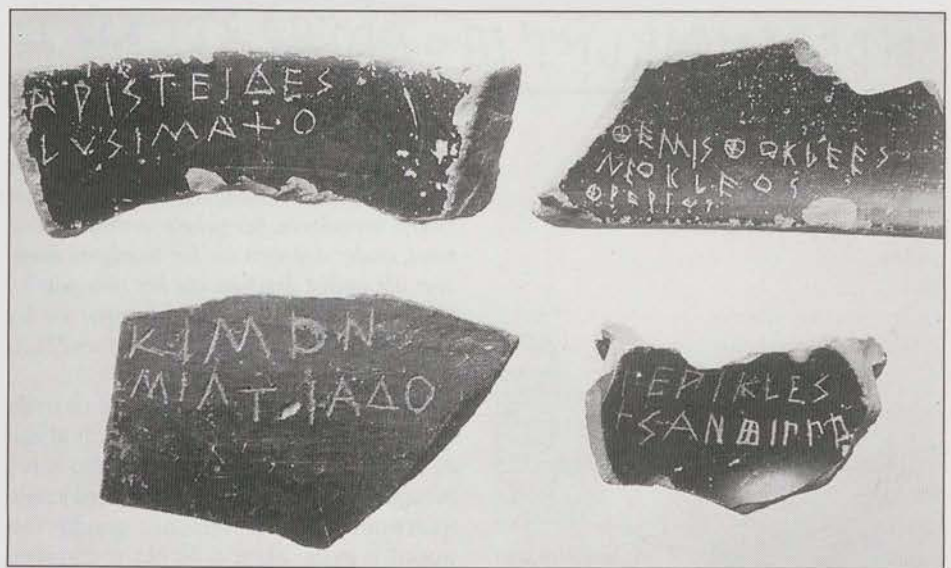 ΑΡΙΣΤΕΙΔΕΣ
ΛΥΣΙΜΑΧΟ
ΘΕΜΙΣΘΟΚΛΕΕΣ
ΝΕΟΚΛΕΟΣ
ΦΡΕΑΡΙΟΣ
ΚΙΜΟΝ
ΜΙΛΤΙΑΔΟ
ΠΕΡΙΚΛΕΣ
ΧΣΑΝΘΙΠΠΟ